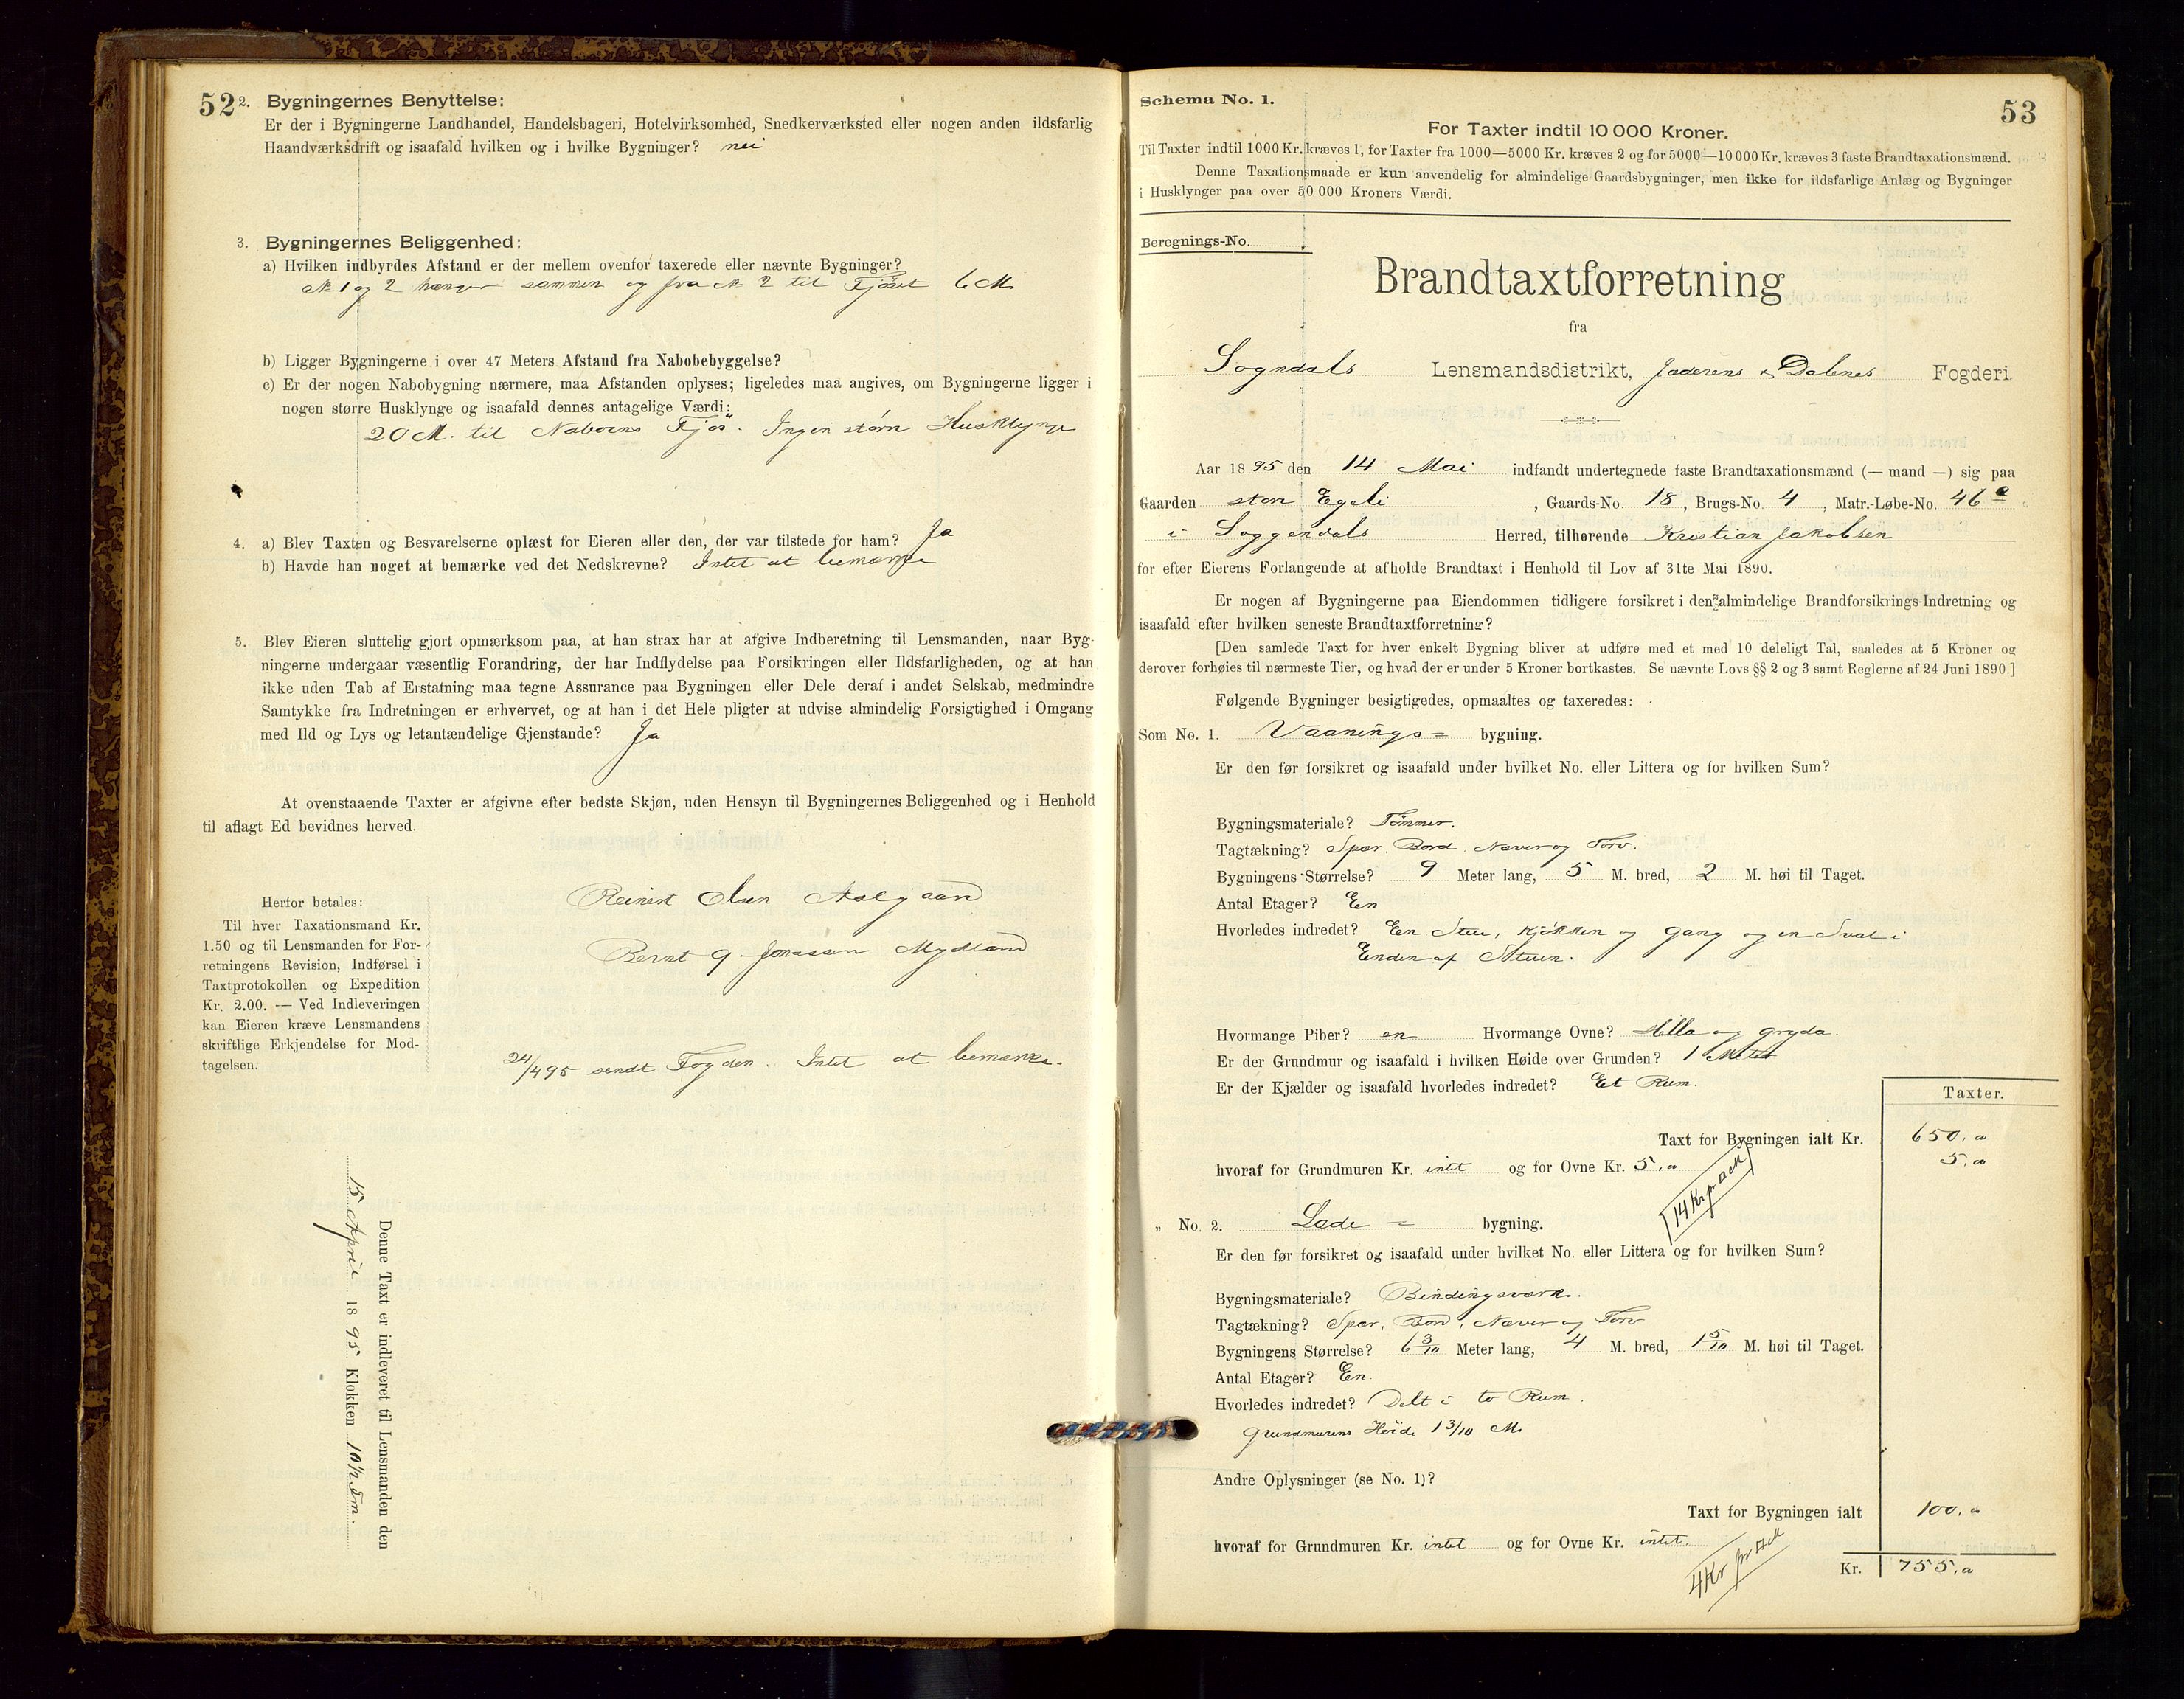 52
2. Bygningernes Benyttelse:
Er der i Bygningerne Landhandel, Handelsbageri, Hotelvirksomhed, Snedkerværksted eller nogen anden ildsfarlig
Haandværksdrift og isaafald hvilken og i hvilke Bygninger? nei
3. Bygningernes Beliggenhed:
a) Hvilken indbyrdes Afstand er der mellem ovenfor taxerede eller nævnte Bygninger?
№ 1 og 2 hænger sammen og fra № 2 til Fjøset 6 M.
b) Ligger Bygningerne i over 47 Meters Afstand fra Nabobebyggelse?
c) Er der nogen Nabobygning nærmere, maa Afstanden oplyses; ligeledes maa angives, om Bygningerne ligger i
nogen større Husklynge og isaafald dennes antagelige Værdi:
20 M. til Naboens Fjøs. Ingen større Husklynge
4. a) Blev Taxten og Besvarelserne oplæst for Eieren eller den, der var tilstede for ham? Ja
b) Havde han noget at bemærke ved det Nedskrevne? Intet at bemærke
5. Blev Eieren sluttelig gjort opmærksom paa, at han strax har at afgive Indberetning til Lensmanden, naar Byg-
ningerne undergaar væsentlig Forandring, der har Indflydelse paa Forsikringen eller Ildsfarligheden, og at han
ikke uden Tab af Erstatning maa tegne Assurance paa Bygningen eller Dele deraf i andet Selskab, medmindre
Samtykke fra Indretningen er erhvervet, og at han i det Hele pligter at udvise almindelig Forsigtighed i Omgang
med Ild og Lys og letantændelige Gjenstande? Ja
At ovenstaaende Taxter er afgivne efter bedste Skjøn, uden Hensyn til Bygningernes Beliggenhed og i Henhold
til aflagt Ed bevidnes herved.
Reinert Olsen Aalgaard
Bernt G Jonassen Mydland
Herfor betales:
Til hver Taxationsmand Kr.
1.50 og til Lensmanden for For-
retningens Revision, Indførsel i
Taxtprotokollen og Expedition
Kr. 2.00. — Ved Indleveringen
kan Eieren kræve Lensmandens
skriftlige Erkjendelse for Mod-
tagelsen.
24/4 95 sendt Fogden. Intet at bemærke.
Denne Taxt er indleveret til Lensmanden den
15 April 1895 Klokken 10½ Fm.
53
Schema No. 1.
For Taxter indtil 10 000 Kroner.
Til Taxter indtil 1000 Kr. kræves 1, for Taxter fra 1000—5000 Kr. kræves 2 og for 5000—10 000 Kr. kræves 3 faste Brandtaxationsmænd.
Denne Taxationsmaade er kun anvendelig for almindelige Gaardsbygninger, men ikke for ildsfarlige Anlæg og Bygninger
i Husklynger paa over 50 000 Kroners Værdi.
Beregnings-No.
Brandtaxtforretning
fra
Sogndals Lensmandsdistrikt, Jæderens & Dalenes Fogderi.
Aar 1895 den 14 Mai indfandt undertegnede faste Brandtaxationsmænd (— mand —) sig paa
Gaarden store Egeli, Gaards-No. 18, Brugs-No. 4, Matr.-Løbe-No. 46
i Soggendals Herred, tilhørende Kristian Jakobsen
for efter Eierens Forlangende at afholde Brandtaxt i Henhold til Lov af 31te Mai 1890.
Er nogen af Bygningerne paa Eiendommen tidligere forsikret i den almindelige Brandforsikrings-Indretning og
isaafald efter hvilken seneste Brandtaxtforretning?
[Den samlede Taxt for hver enkelt Bygning bliver at udføre med et med 10 deleligt Tal, saaledes at 5 Kroner og
derover forhøies til nærmeste Tier, og hvad der er under 5 Kroner bortkastes. Se nævnte Lovs §§ 2 og 3 samt Reglerne af 24 Juni 1890.]
Følgende Bygninger besigtigedes, opmaaltes og taxeredes:
Som No. 1. Vaanings= bygning.
Er den før forsikret og isaafald under hvilket No. eller Littera og for hvilken Sum?
Bygningsmateriale? Tømmer.
Tagtækning? Spær. Bord. Næver og Torv.
Bygningens Størrelse? 9 Meter lang, 5 M. bred, 2 M. høi til Taget.
Antal Etager? En
Hvorledes indredet? Een Stue, Kjøkken og Gang og en Sval i
Enden af Stuen.
Hvormange Piber? en Hvormange Ovne? Hella og gryda.
Er der Grundmur og isaafald i hvilken Høide over Grunden? 1 Meter
Er der Kjælder og isaafald hvorledes indredet? Et Rum.
Taxter.
Taxt for Bygningen ialt Kr. 650,00
hvoraf for Grundmuren Kr. intet og for Ovne Kr. 5,00 5,00
14 Kr pr □ M
„ No. 2. Lade= bygning.
Er den før forsikret og isaafald under hvilket No. eller Littera og for hvilken Sum?
Bygningsmateriale? Bindingsværk.
Tagtækning? Spær, Bord, Næver og Torv
Bygningens Størrelse? 6 3/10 Meter lang, 4 M. bred, 1 5/10 M. høi til Taget.
Antal Etager? En.
Hvorledes indredet? Delt i to Rum.
Grundmurens Høide 1 3/10 M.
Andre Oplysninger (se No. 1)?
Taxt for Bygningen ialt 100,00
hvoraf for Grundmuren Kr. intet og for Ovne Kr. intet.
4 Kr pr □ M
Kr. 755,00